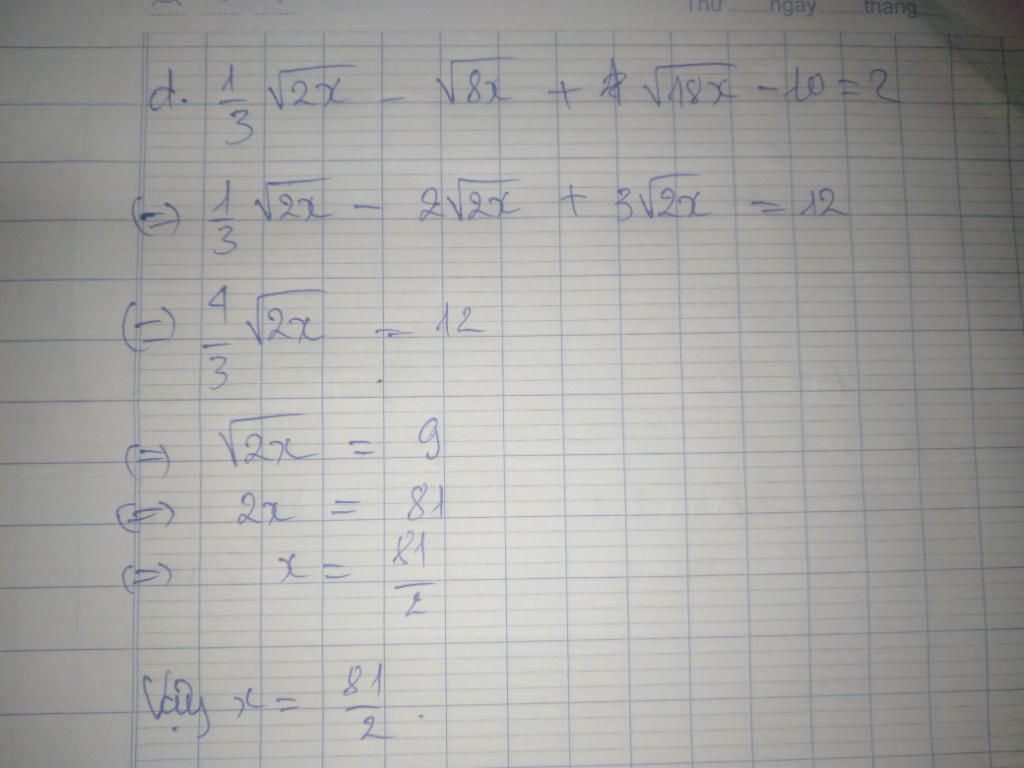 Thứ ngày tháng
d. 1/3 √2x - √8x + √18x - 10 = 2
(=) 1/3 √2x - 2√2x + 3√2x = 12
(=) 4/3 √2x = 12
(=) √2x = 9
(=) 2x = 81
(=) x = 81/2
Vậy x = 81/2.